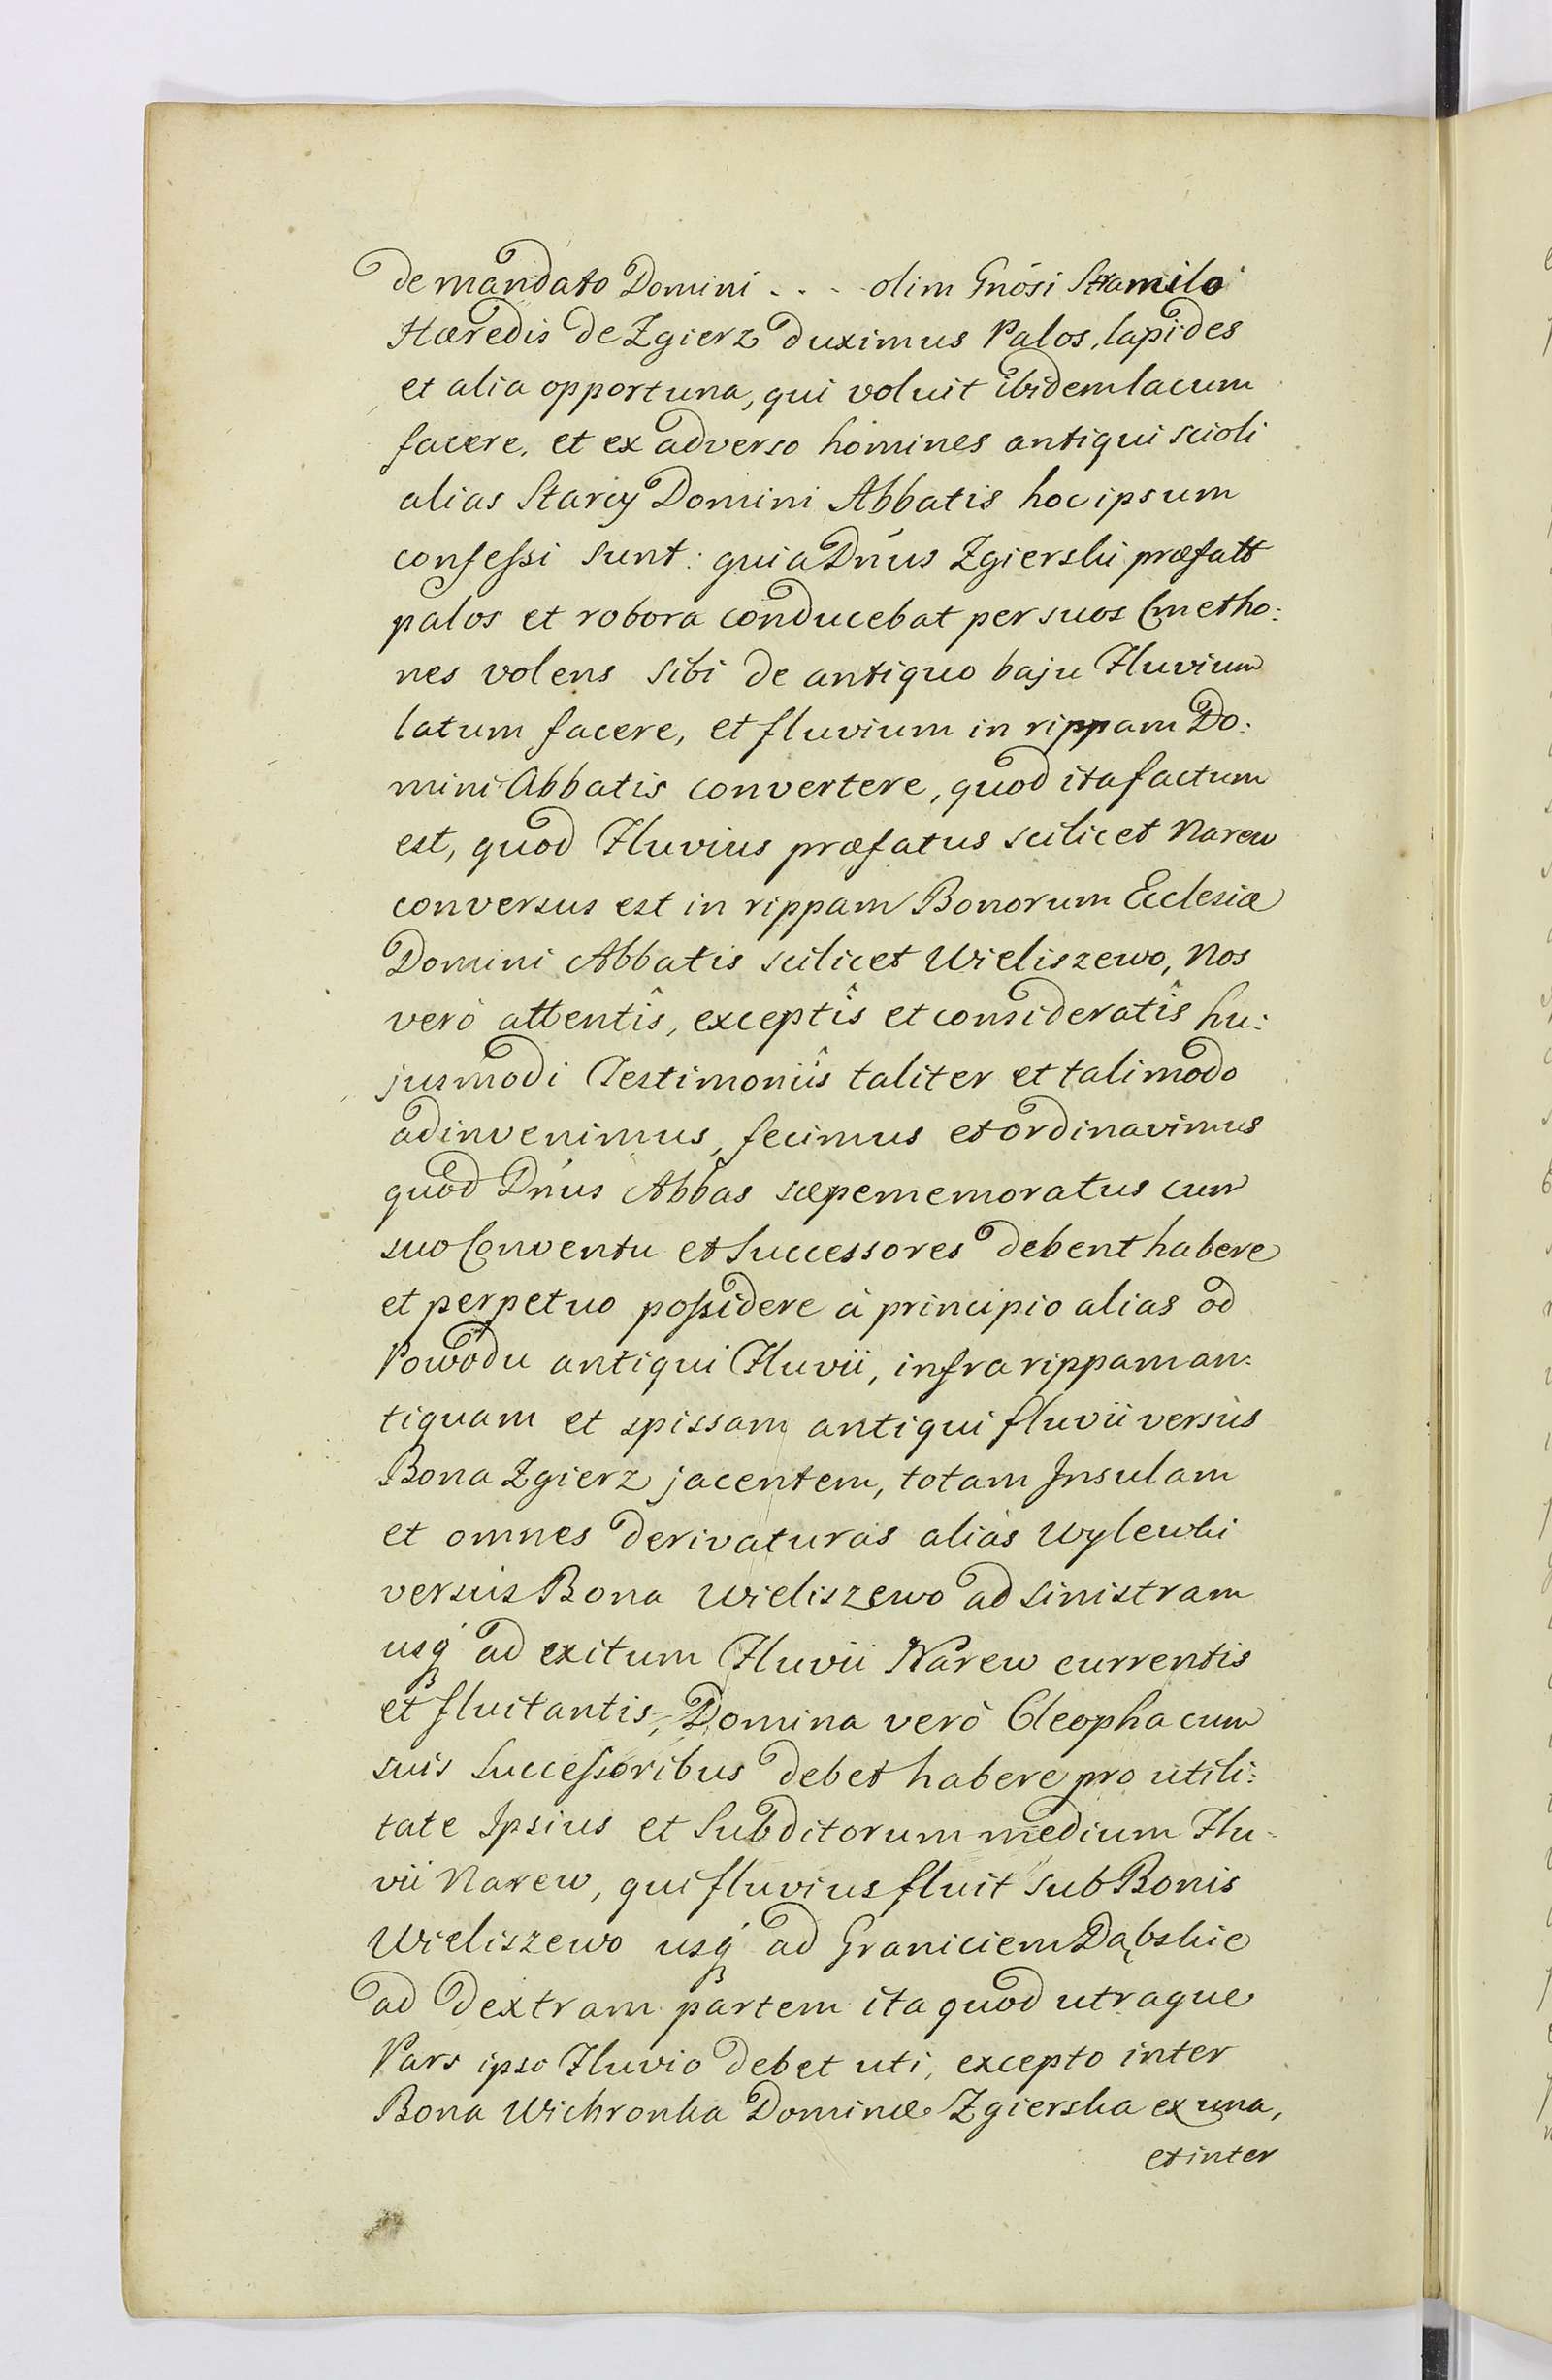 de mandato Domini . . . olim Gnósi Stramilo
Hæredis de Zgierz duximus Palos, lapides
et alia opportuna, qui voluit ibidem lacum
facere, et ex adverso homines antiqui scioli
alias Starcy Domini Abbatis hoc ipsum
confessi sunt: quia Dńus Zgierski præfatt
palos et robora conducebat per suos Cmetho:
nes volens sibi de antiquo baju Fluvium
latum facere, et fluvium in rippam Do:
mini Abbatis convertere, quod ita factum
est, quod Fluvius præfatus scilicet Narew
conversus est in rippam Bonorum Ecclesiæ
Domini Abbatis scilicet Wieliszewo, Nos
verò attentîs, exceptîs et consideratîs hu:
jusmodi Testimoniîs taliter et tali modo
adinvenimus, fecimus et ordinavimus
quod Dńus Abbas sæpememoratus cum
suo Conventu et Successores debent habere
et perpetuo possidere à principio alias od
Powodu antiqui Fluvii, infra rippam an:
tiquam et spissam antiqui fluvii versùs
Bona Zgierz jacentem, totam Insulam
et omnes derivaturas aliàs Wylewki
versùs Bona Wieliszewo ad sinistram
usq́ ad exitum Fluvii Narew currentis
et fluitantis, Domina verò Cleopha cum
suis Successoribus debet habere pro utili:
tate Ipsius et Subditorum medium Flu-
vii Narew, qui fluvius fluit sub Bonis
Wieliszewo usq́ ad Graniciem Dąbskie
ad dextram partem ita quod utraque
Pars ipso Fluvio debet uti, excepto inter
Bona Wichronka Dominæ Zgierska ex una,
et inter